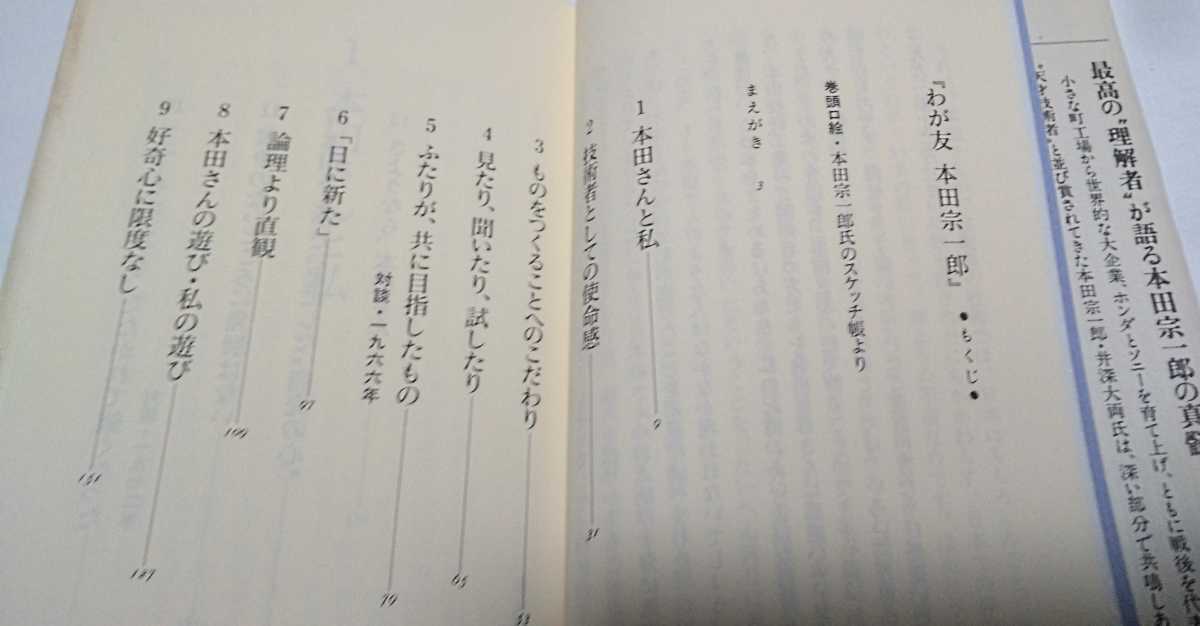 最高の"理解者"が語る本田宗一郎の真
小さな町工場から世界的な大企業、ホンダとソニーを育て上げ、ともに戦後を代
"天才技術者"と並び賞されてきた本田宗一郎・井深大両氏は、深い部分で共鳴しあ
『わが友 本田宗一郎』●もくじ●
巻頭口絵・本田宗一郎氏のスケッチ帳より
まえがき 3
1 本田さんと私 9
2 技術者としての使命感 31
3 ものをつくることへのこだわり 53
4 見たり、聞いたり、試したり 65
5 ふたりが、共に目指したもの 79
対談・一九六六年
6 「日に新た」 97
7 論理より直観 109
8 本田さんの遊び・私の遊び 127
9 好奇心に限度なし 151